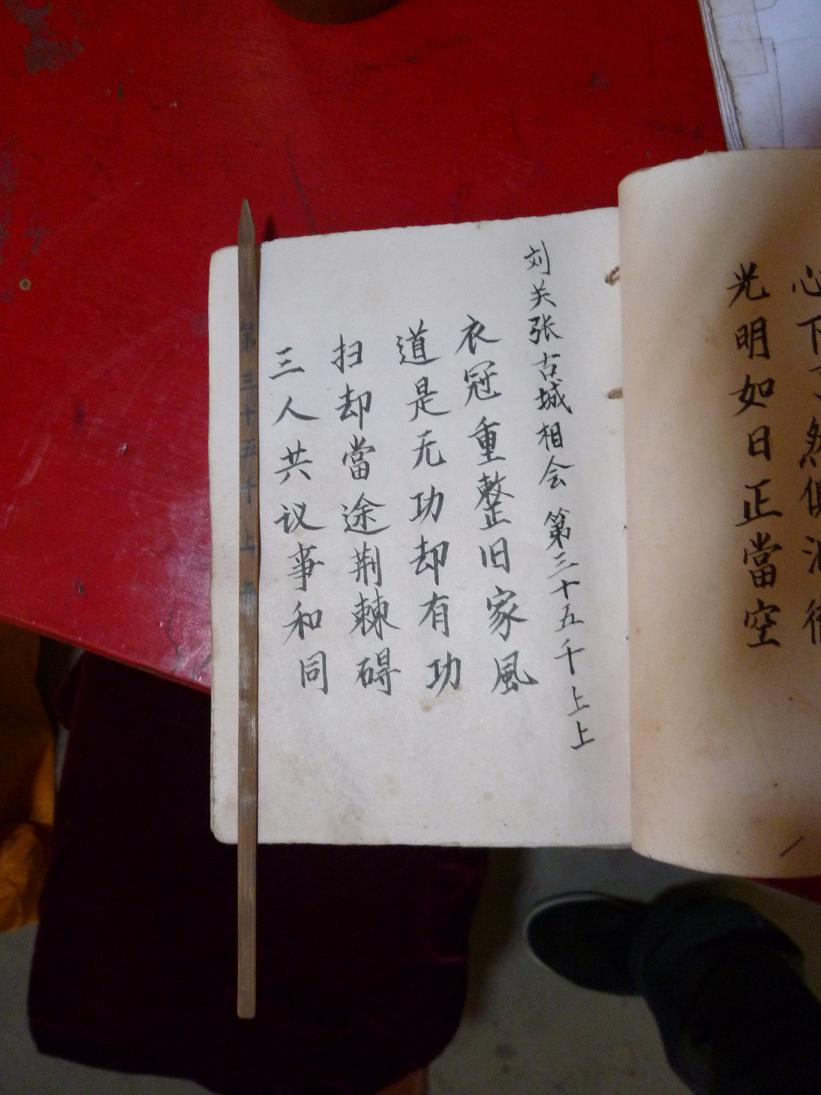 光明如日正當空
刘关张古城相会 第三十五千上上
衣冠重整旧家風
道是无功却有功
扫却當途荆棘碍
三人共议事和同
第三十五千上上